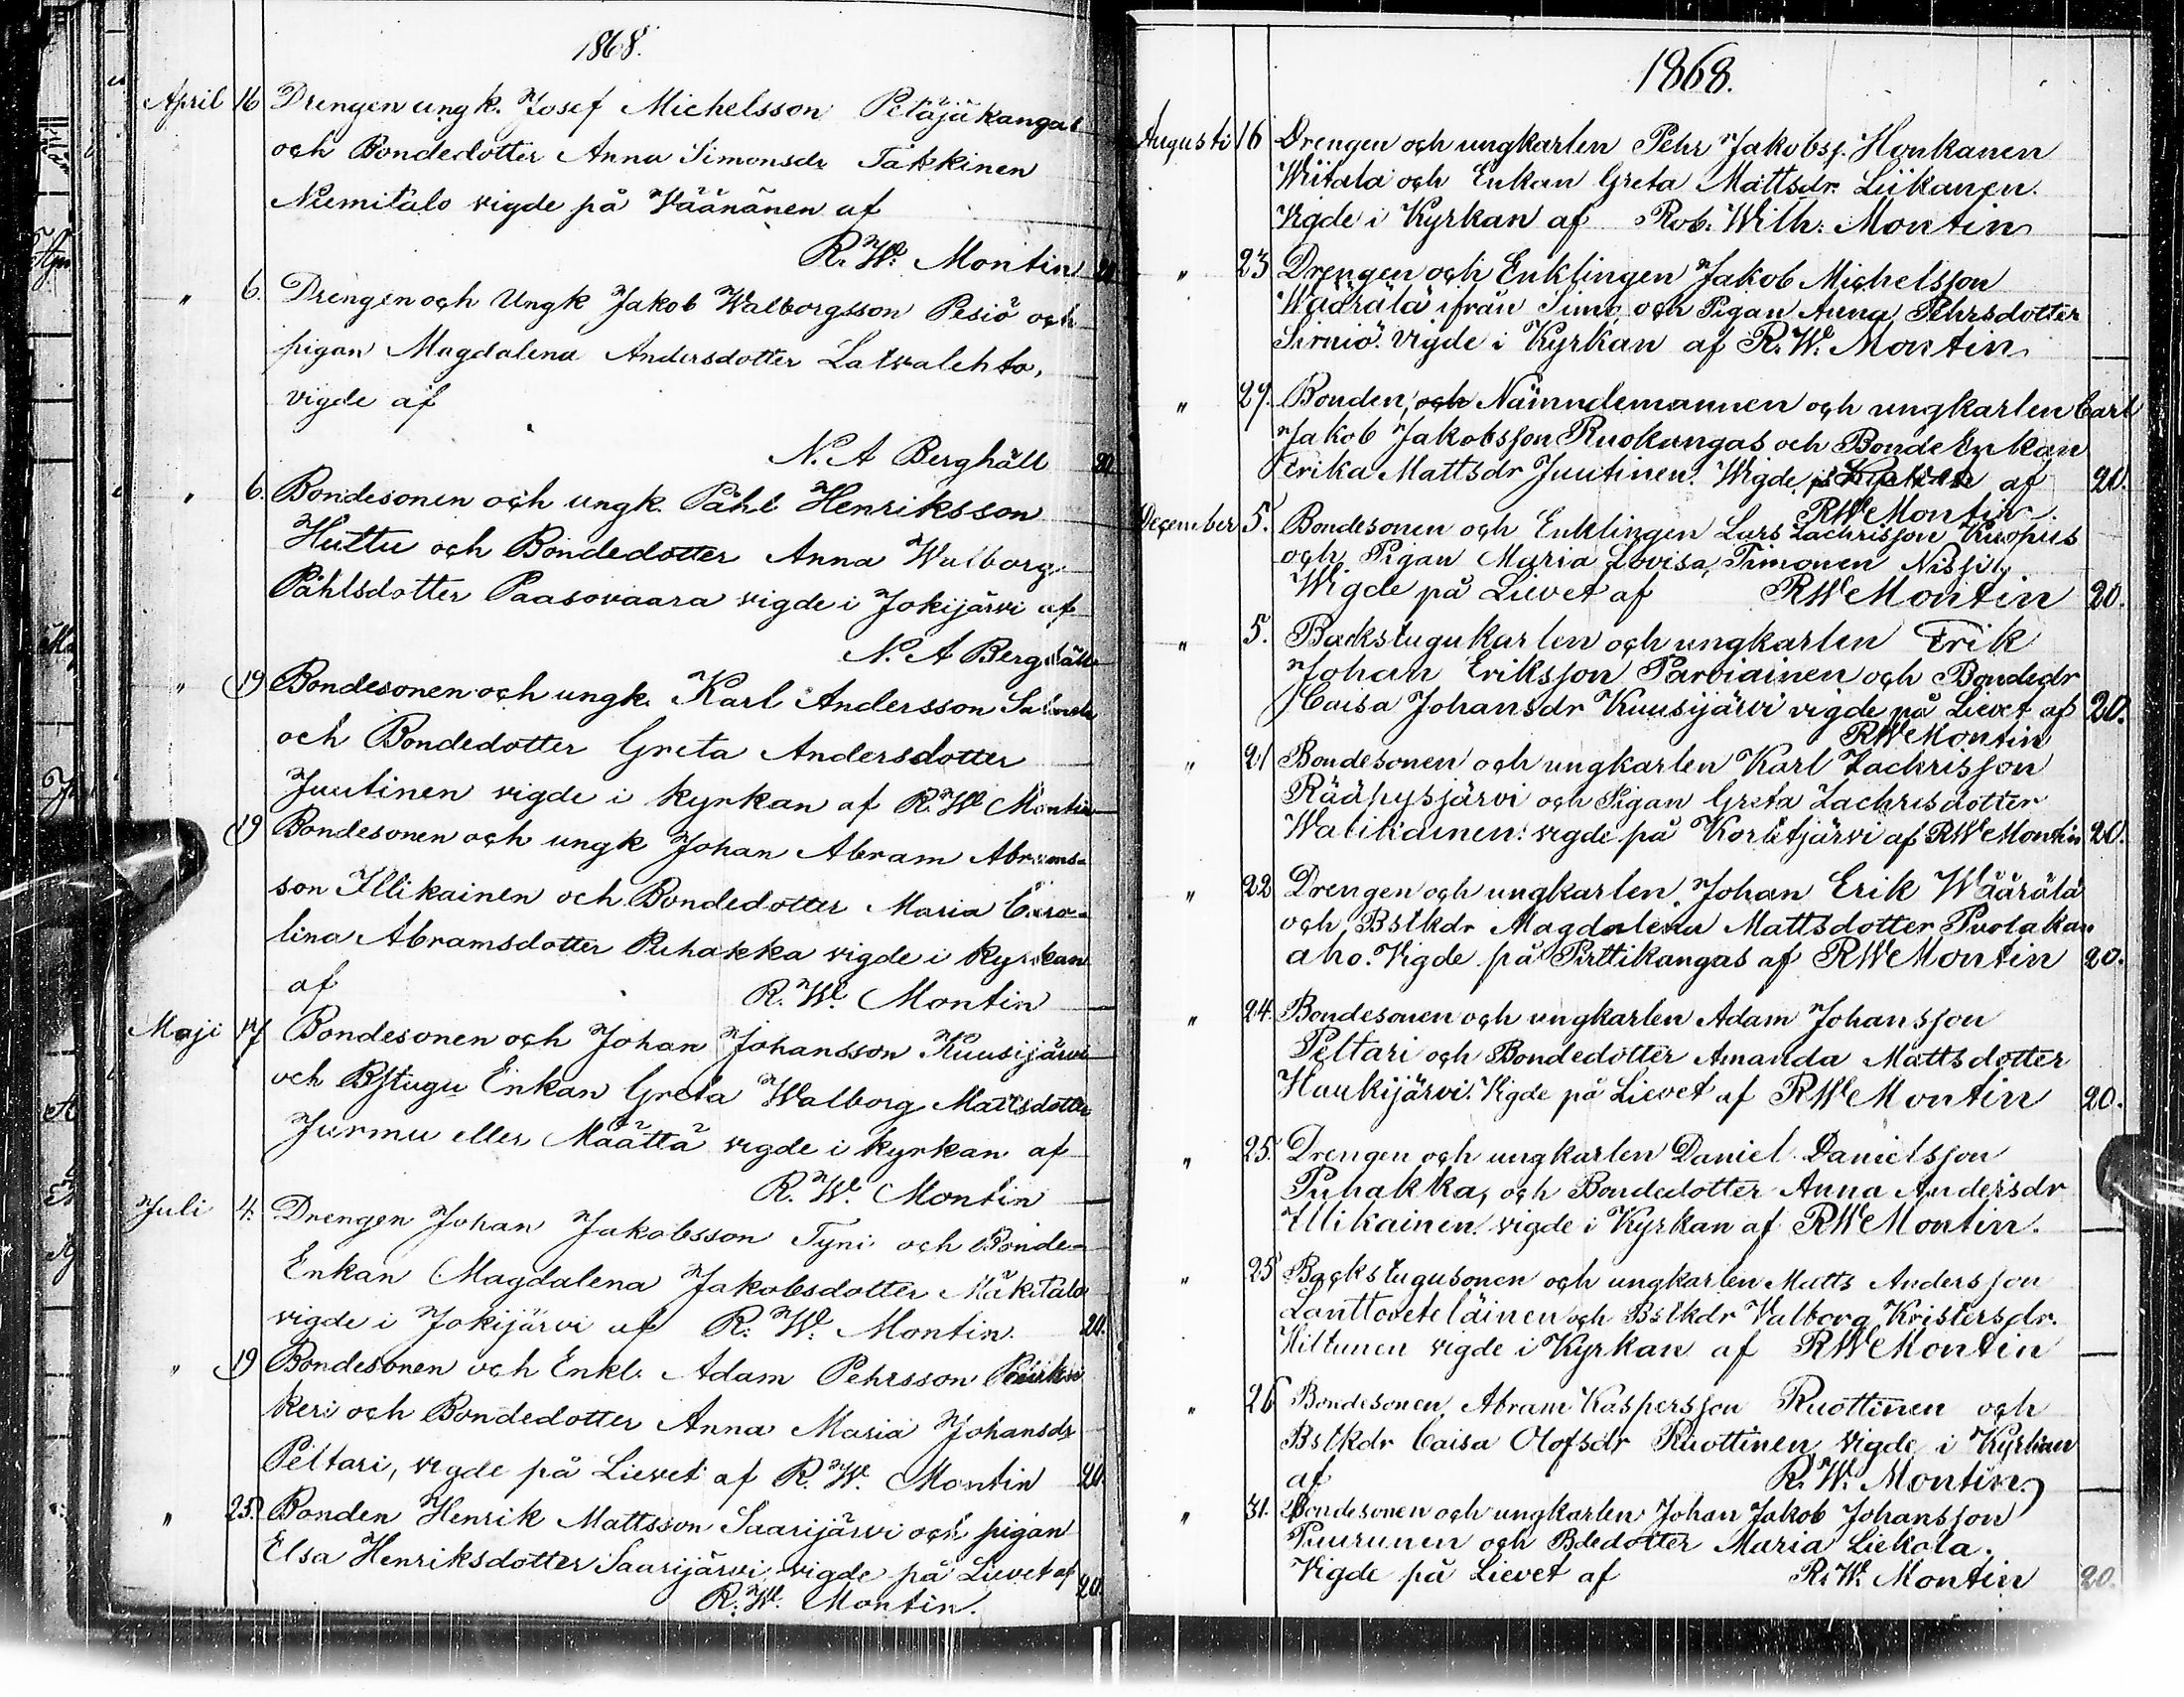 1868.
April 16 Drengen ungk. Josef Michelsson Petäjäkangas
och Bondedotter Anna Simonsdr Takkinen
Niemitalo vigde på Väänänen af
R. W. Montin 20
" 6. Drengen och Ungk Jakob Walborgsson Pesiö och
pigan Magdalena Andersdotter Latvalehto,
vigde af
N. A Berghäll 20
" 6. Bondesonen och ungk. Påhl Henriksson
Huttu och Bondedotter Anna Walborg
Påhlsdotter Paasovaara vigde i Jokijärvi af
N. A Berghäll
" 19 Bondesonen och ungk. Karl Andersson
och Bondedotter Greta Andersdotter
Juutinen vigde i kyrkan af R. W. Montin
19 Bondesonen och ungk Johan Abram Abrams-
son Illikainen och Bondedotter Maria Caro-
lina Abramsdotter Puhakka vigde i kyrkan
af R. W. Montin
Maji 17 Bondesonen och Johan Johansson Kuusijärvi
och Bstugu Enkan Greta Walborg Mattsdotter
Jurmu eller Määttä vigde i kyrkan af
R. W. Montin
Juli 4. Drengen Johan Jakobsson Tyni och Bonde-
Enkan Magdalena Jakobsdotter Mäkitalo
vigde i Jokijärvi af R. W. Montin. 20.
" 19 Bondesonen och Enkl. Adam Pehrsson
keri och Bondedotter Anna Maria Johansdr
Peltari, vigde på Lievet af R. W. Montin 20
" 25. Bonden Henrik Mattsson Saarijärvi och pigan
Elsa Henriksdotter Saarijärvi, vigde på Lievet af 20
R. W. Montin.
1868.
Augusti 16 Drengen och ungkarlen Pehr Jakobss. Honkanen
Wiitala och Enkan Greta Mattsdr. Liikanen.
Vigde i Kyrkan af Rob. Wilh. Montin
" 23 Drengen och Enklingen Jakob Michelsson
Wäärälä ifrån Simo, och Pigan Anna Pehrsdotter
Sirniö. Vigde i Kyrkan af R. W. Montin
" 27. Bonden, och Nämndemannen och ungkarlen Carl
Jakob Jakobsson Ruokangas och Bonde Enkan
Erika Mattsdr Juutinen. Wigde af 20.
RW Montin.
December 5. Bondesonen och Enklingen Lars Zachrisson Kuopus
och Pigan Maria Lovisa Timonen
Wigde på Lievet af RW Montin 20.
" 5. Backstugukarlen och ungkarlen Erik
Johan Eriksson Parviainen och Bondedr
Caisa Johansdr Kuusijärvi vigde på Lievet af 20.
RW Montin
" 21 Bondesonen och ungkarlen Karl Zachrisson
Rääpysjärvi och Pigan Greta Zachrisdotter
Walikainen. vigde på af RW Montin 20.
" 22 Drengen och ungkarlen Johan Erik Wäärälä
och Bstkdr Magdalena Mattsdotter Puolakan
aho. Vigde på Pirttikangas af RW Montin 20.
" 24. Bondesonen och ungkarlen Adam Johansson
Peltari och Bondedotter Amanda Mattsdotter
Haukijärvi. Vigde på Lievet af RW Montin 20.
" 25. Drengen och ungkarlen Daniel Danielsson
Puhakka, och Bondedotter Anna Andersdr
Illikainen. vigde i Kyrkan af RW Montin.
" 25 Backstugusonen och ungkarlen Matts Andersson
Lanttoveteläinen och Bstkdr Valborg Kristersdr.
Hiltunen vigde i Kyrkan af RW Montin
" 26 Bondesonen Abram Kaspersson Ruottinen och
Bstkdr Caisa Olofsdr Ruottinen vigde i Kyrkan
af R. W. Montin.
" 31. Bondesonen och ungkarlen Johan Jakob Johansson
Puurunen och Bdedotter Maria Liekola.
Vigde på Lievet af R. W. Montin 20.